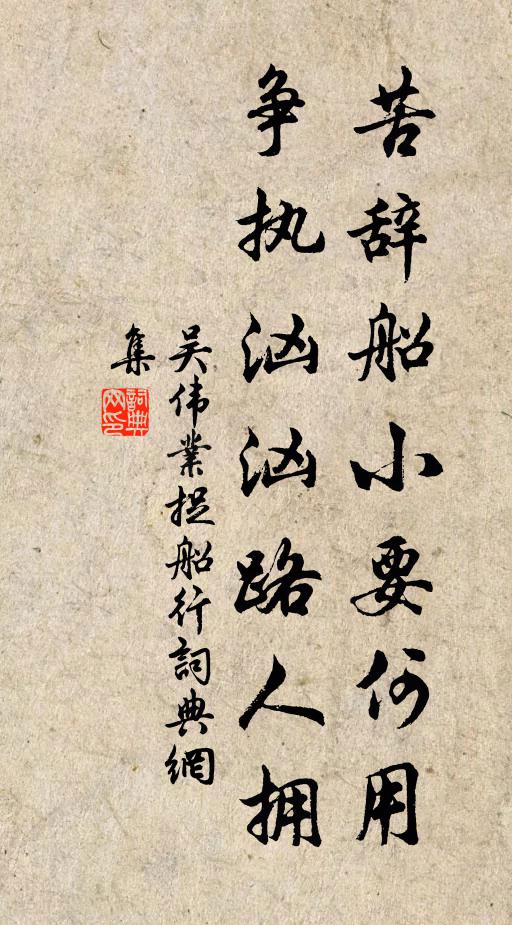 苦辞船小要何用
争执汹汹路人拥
吴伟业捉船行詞典網
集
詞典網印